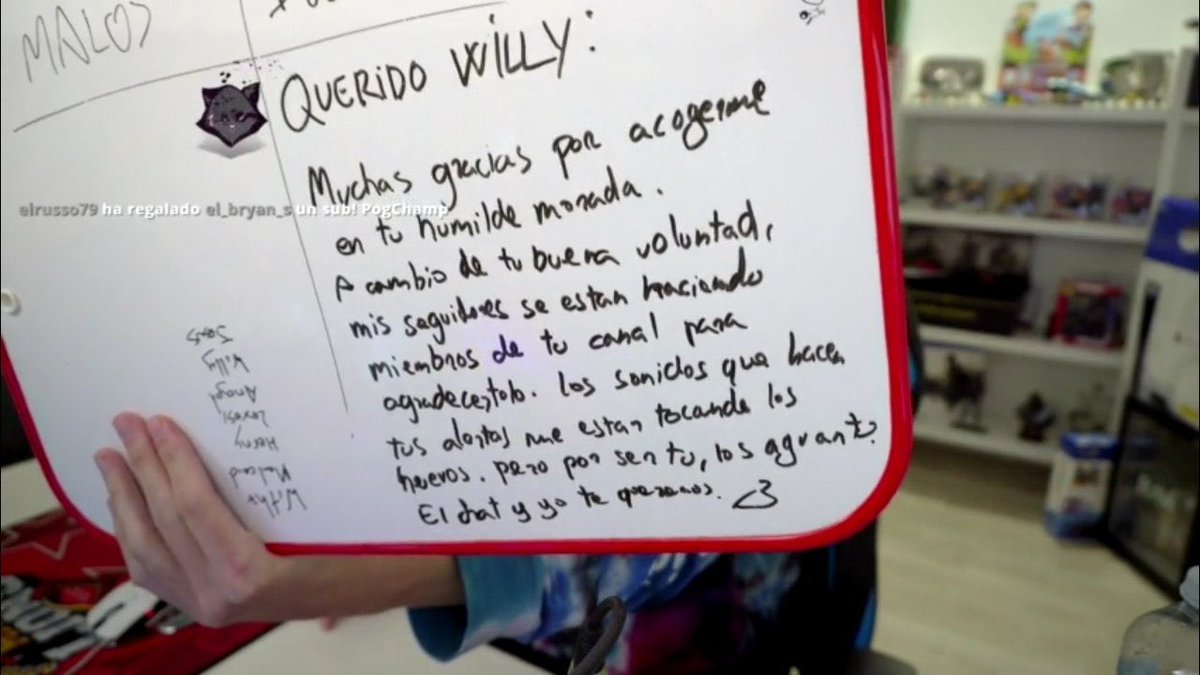 MALOS
QUERIDO WILLY:
Muchas gracias por acogerme
en tu humilde morada.
A cambio de tu buena voluntad,
mis seguidores se estan haciendo
miembros de tu canal para
agradecertelo. Los sonidos que hacen
tus alertas me estan tocando los
huevos. pero por ser tu, los aguanto.
El chat y yo te queremos. <3
elrusso79 ha regalado el_bryan_s un sub! PogChamp
Willy